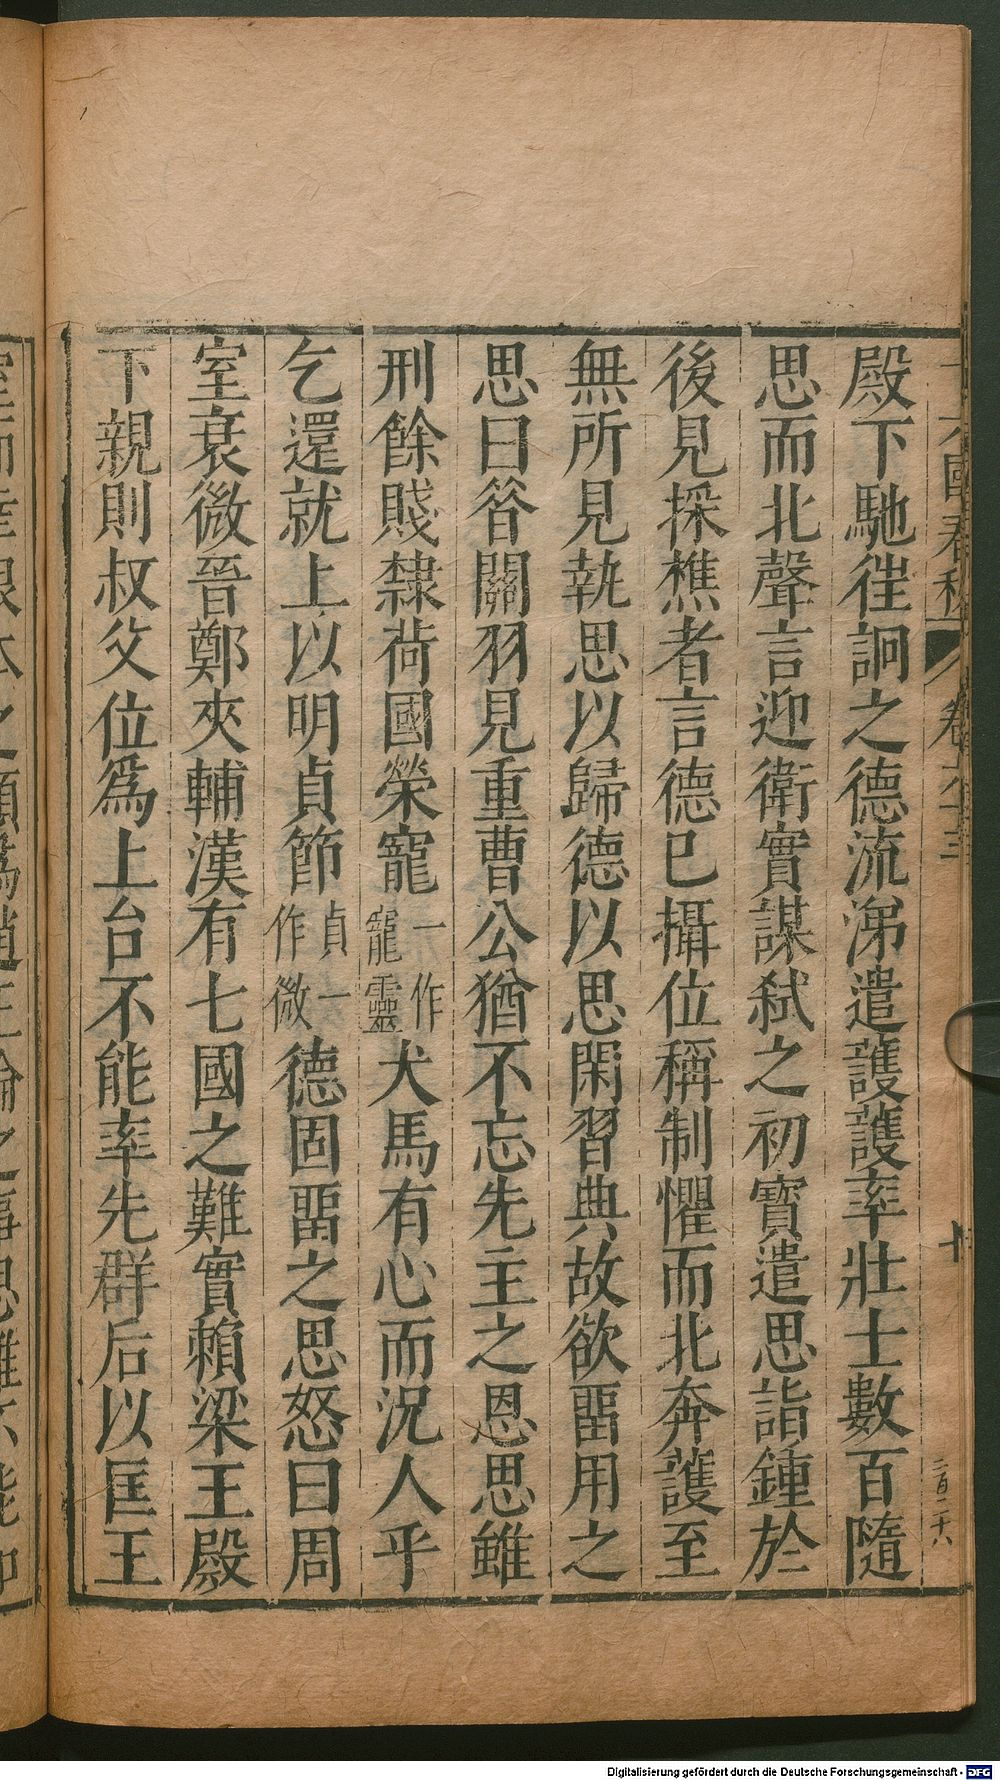 十六國春秋 卷六十三 十
二百二十八
殿下馳徃詗之德流涕遣䕶䕶率壯士數百隨
思而北聲言迎衛實謀弑之初寳遣思詣鍾於
後見採樵者言德已攝位稱制懼而北奔䕶至
無所見執思以歸德以思閑習典故欲畱用之
思曰答關羽見重曹公猶不忘先主之恩思雖
刑餘賤隸荷國榮寵一作寵靈犬馬有心而況人乎
乞還就上以明貞節貞一作微德固畱之思怒曰周
室衰微晉鄭夾輔漢有七國之難實賴梁王殿
下親則叔父位爲上台不能率先群后以匡王
Digitalisierung gefördert durch die Deutsche Forschungsgemeinschaft - DFG